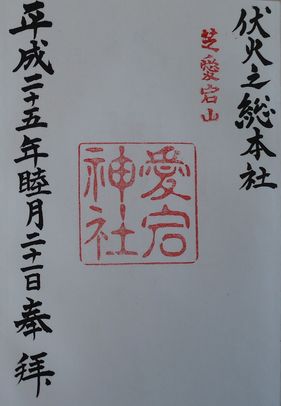 伏火之総本社
芝愛宕山
愛宕
神社
平成二十五年睦月二十一日奉拝